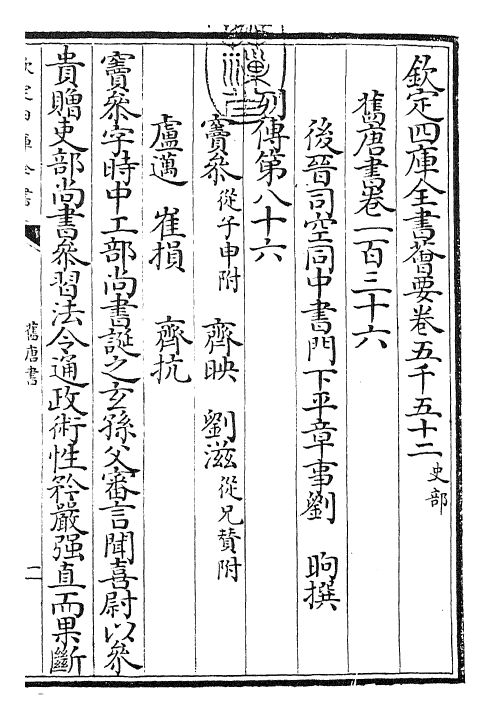 欽定四庫全書薈要卷五千五十二 史部
舊唐書卷一百三十六
後晉司空同中書門下平章事劉 昫撰
列傳第八十六
竇參 從子申附 齊映 劉滋 從兄贊附
盧邁 崔損 齊抗
竇參字時中工部尚書誕之玄孫父審言聞喜尉以參
貴贈吏部尚書參習法令通政術性矜嚴强直而果斷
舊唐書